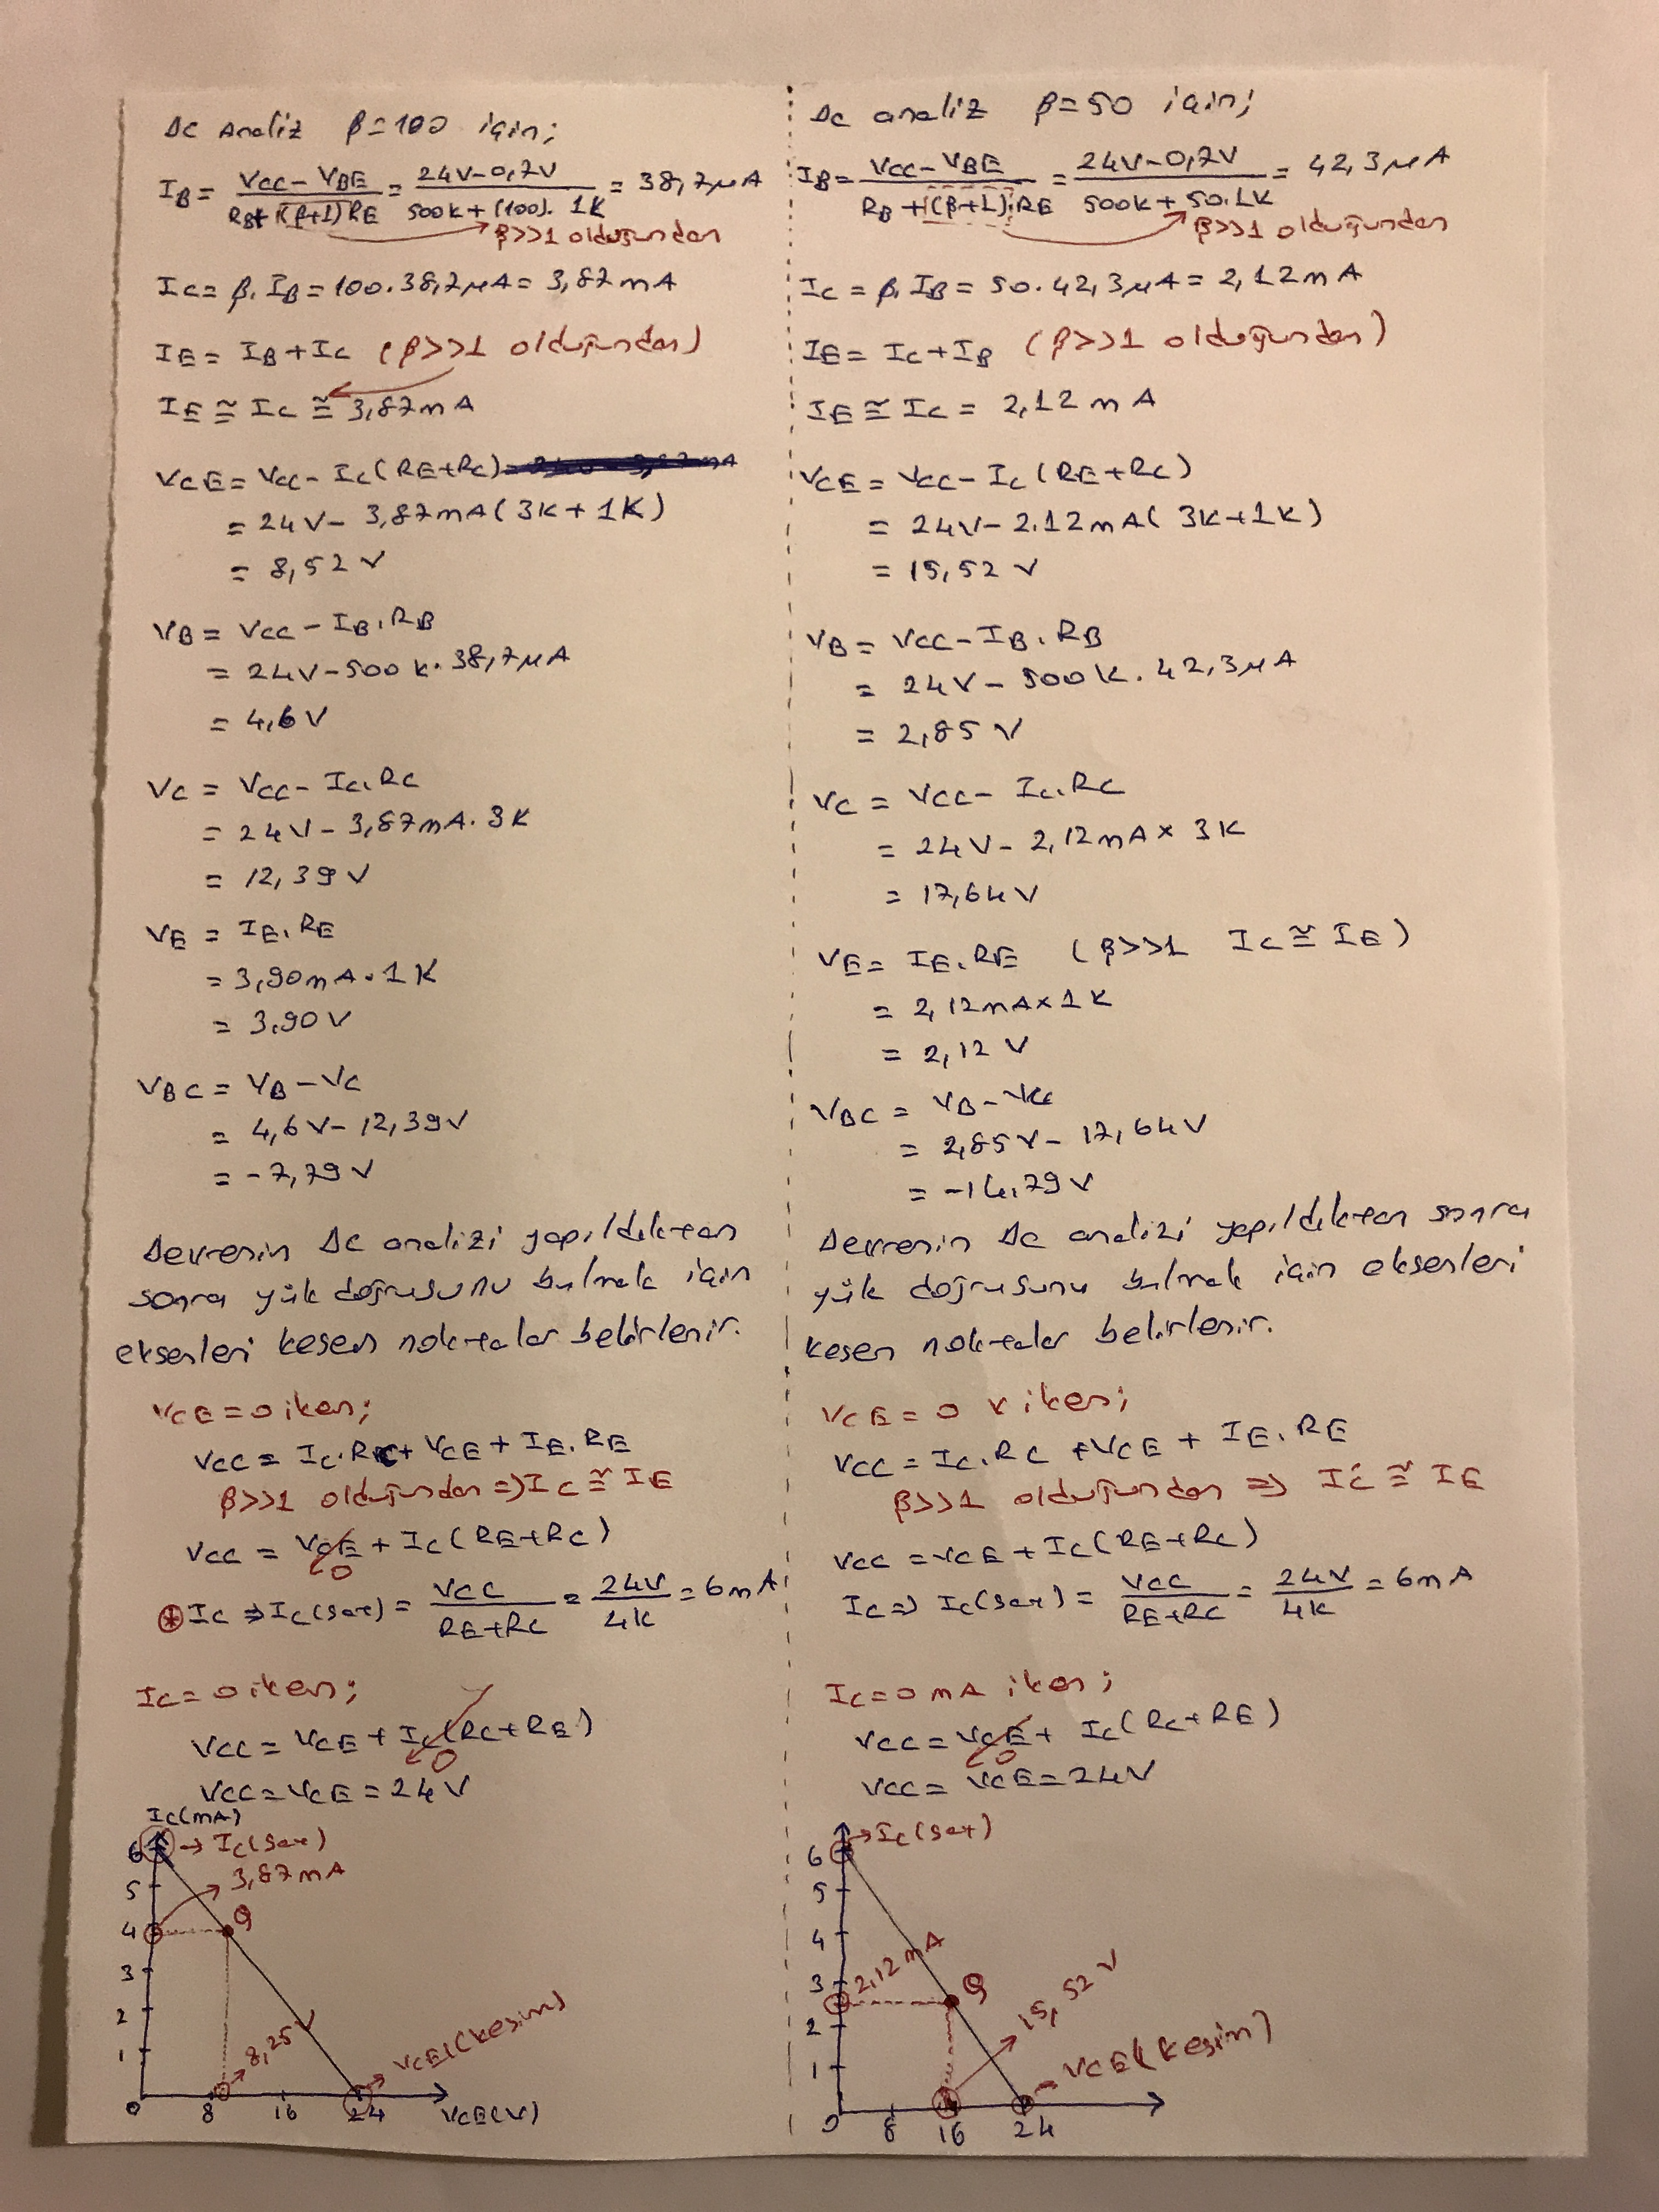 DC Analiz β=100 için;
IB = (VCC - VBE) / (RB + (β+1) RE) = (24V - 0,7V) / (500k + (100). 1K) = 38,7μA
β>>1 olduğundan
IC = β. IB = 100. 38,7μA = 3,87mA
IE = IB + IC (β>>1 olduğundan)
IE ≅ IC ≅ 3,87mA
VCE = VCC - IC (RE+RC)
= 24V - 3,87mA (3K + 1K)
= 8,52V
VB = VCC - IB. RB
= 24V - 500k. 38,7μA
= 4,6V
VC = VCC - IC. RC
= 24V - 3,87mA. 3K
= 12,39V
VE = IE. RE
= 3,90mA. 1K
= 3,90V
VBC = VB - VC
= 4,6V - 12,39V
= -7,79V
Devrenin DC analizi yapıldıktan
sonra yük doğrusunu bulmak için
eksenleri kesen noktalar belirlenir.
VCE = 0 iken;
VCC = IC. RC + VCE + IE. RE
β>>1 olduğundan => IC ≅ IE
VCC = VCE + IC (RE+RC)
0
* IC => IC(sat) = VCC / (RE+RC) = 24V / 4k = 6mA
IC = 0 iken;
VCC = VCE + IC (RC+RE)
0
VCC = VCE = 24V
IC(mA)
6 → IC(sat)
3,87mA
5
4 Q
3
2
1
8,25V
VCE(kesim)
0 8 16 24 VCE(V)
DC analiz β=50 için;
IB = (VCC - VBE) / (RB + (β+1). RE) = (24V - 0,7V) / (500k + 50. 1K) = 42,3μA
β>>1 olduğundan
IC = β. IB = 50. 42,3μA = 2,12mA
IE = IC + IB (β>>1 olduğundan)
IE ≅ IC = 2,12mA
VCE = VCC - IC (RE+RC)
= 24V - 2.12mA (3K+1K)
= 15,52V
VB = VCC - IB. RB
= 24V - 500k. 42,3μA
= 2,85V
VC = VCC - IC. RC
= 24V - 2,12mA x 3K
= 17,64V
VE = IE. RE (β>>1 IC ≅ IE)
= 2,12mA x 1K
= 2,12V
VBC = VB - VC
= 2,85V - 17,64V
= -14,79V
Devrenin DC analizi yapıldıktan sonra
yük doğrusunu bulmak için eksenleri
kesen noktalar belirlenir.
VCE = 0 V iken;
VCC = IC. RC + VCE + IE. RE
β>>1 olduğundan => IC ≅ IE
VCC = VCE + IC (RE+RC)
IC => IC(sat) = VCC / (RE+RC) = 24V / 4K = 6mA
IC = 0 mA iken;
VCC = VCE + IC (RC+RE)
0
VCC = VCE = 24V
6 → IC(sat)
5
4
3 2,12mA
Q
2
15,52V
1
VCE(kesim)
0 8 16 24